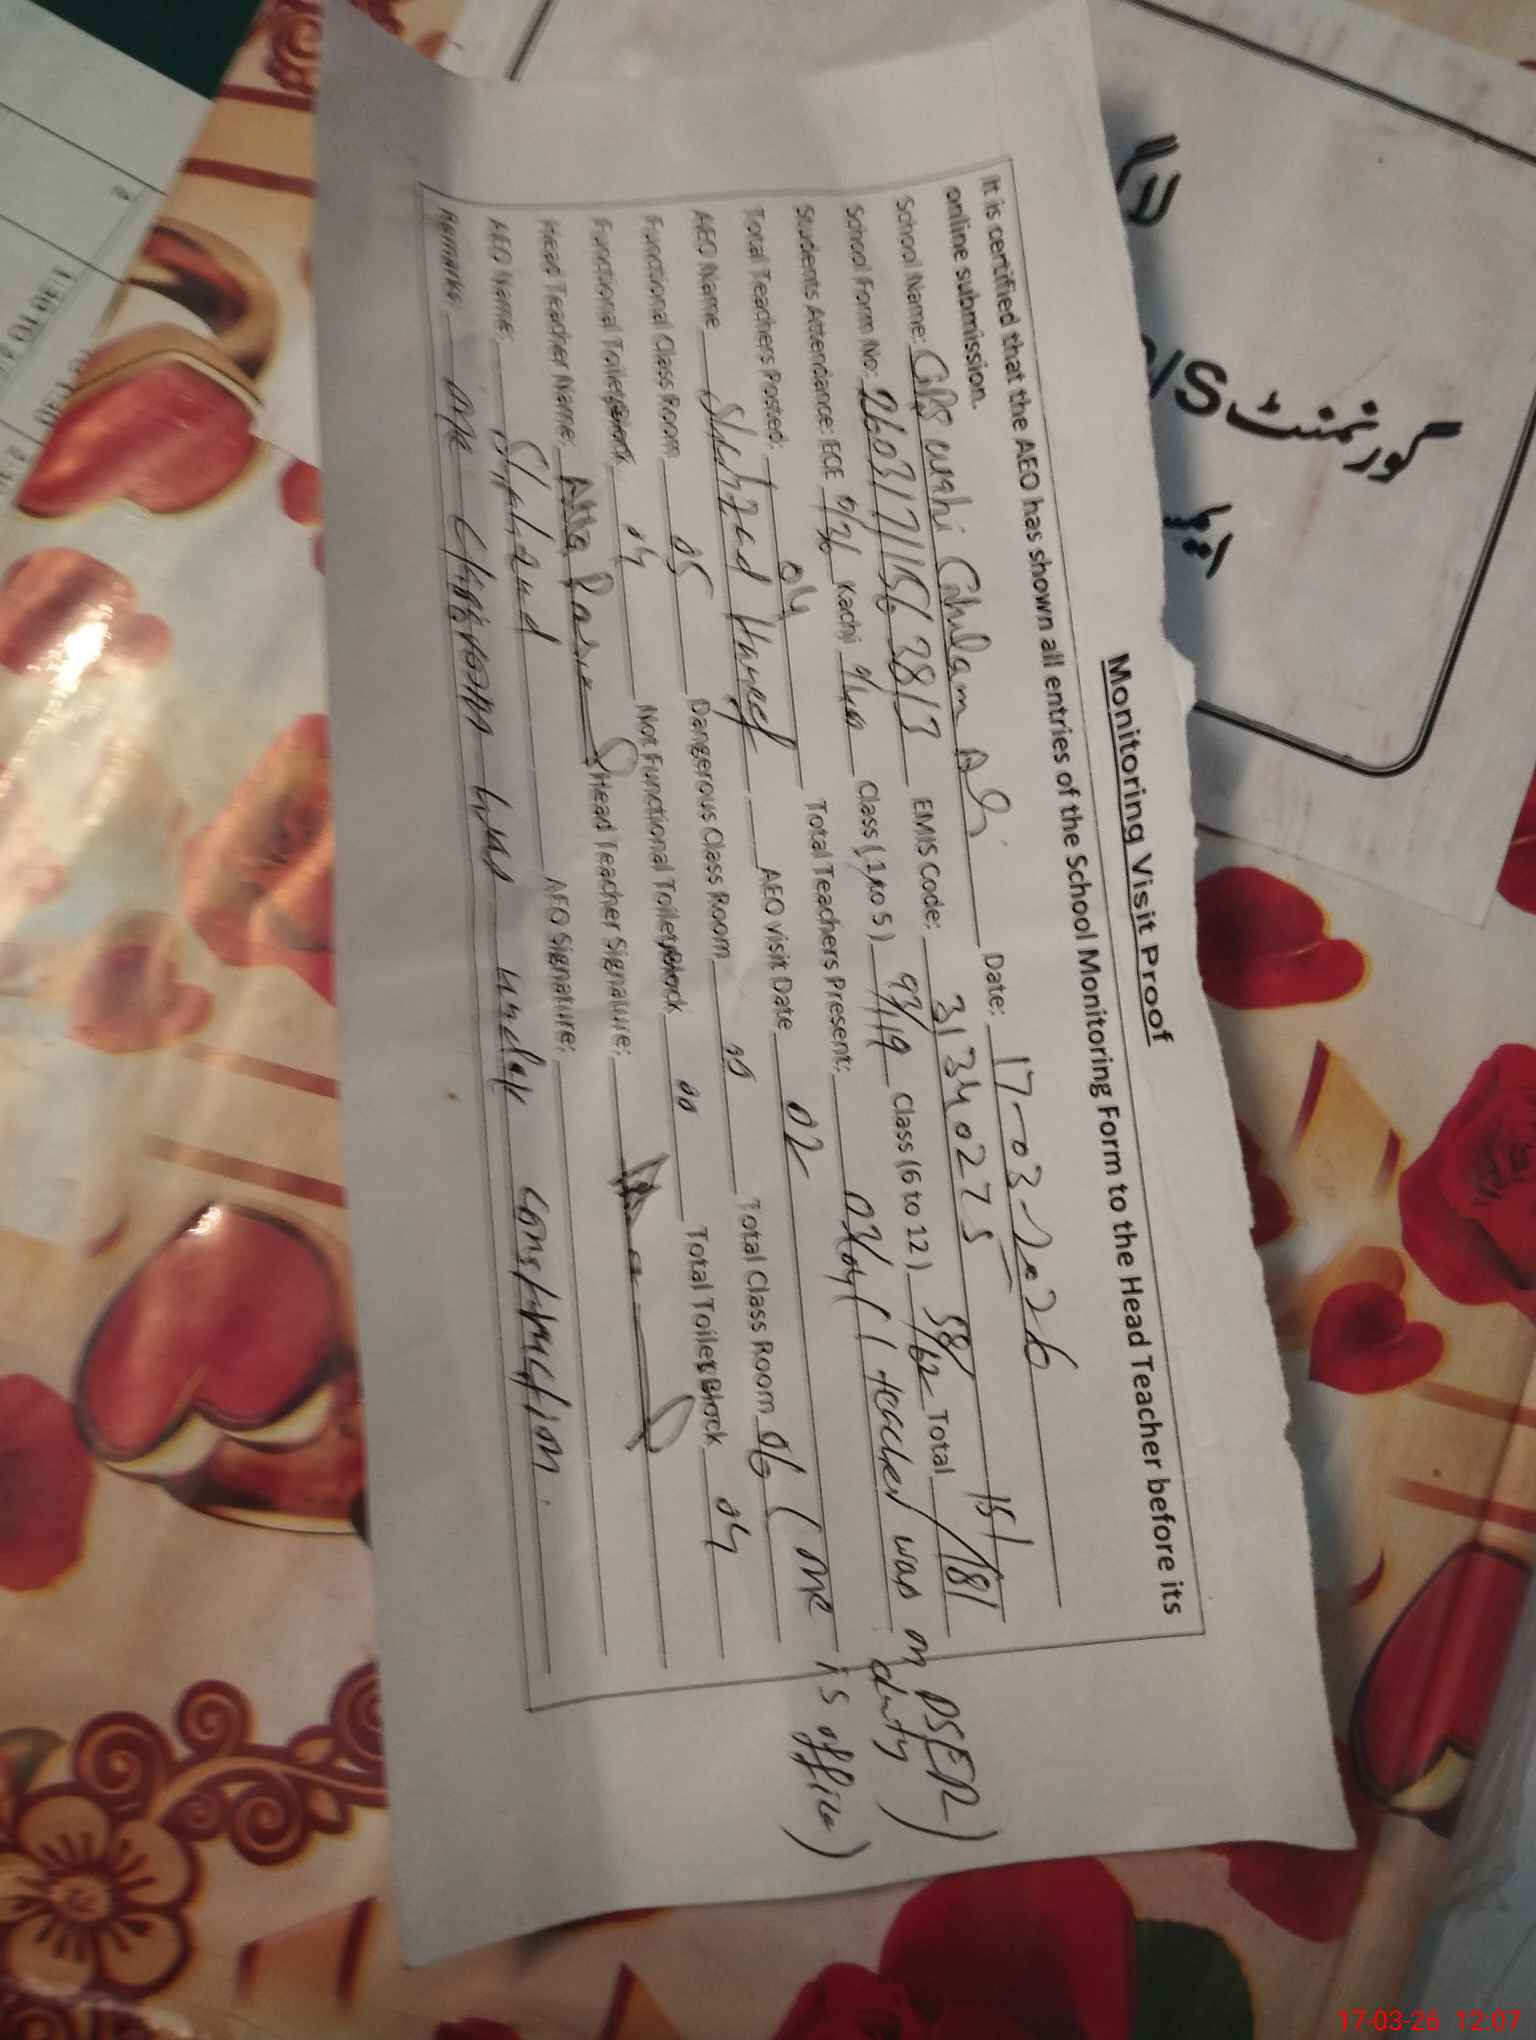 Monitoring Visit Proof
It is certified that the AEO has shown all entries of the School Monitoring Form to the Head Teacher before its
online submission.
School Name: GPS wahi Ghulam Ali Date: 17-03-2026
School Form No: EMIS Code: 31340275
Students Attendance: ECE 0/0 Kachi 0/00 Class (1 to 5) 93/119 Class (6 to 12) 58/62 Total 151/181
Total Teachers Posted: 04 Total Teachers Present: 03/04 (1 teacher was on PSER duty)
AEO Name Shahzad Hameed AEO visit Date 02
Functional Class Room 05 Dangerous Class Room 00 Total Class Room 06 (one is office)
Functional Toilet Block 04 Not Functional Toilet Block 00 Total Toilet Block 04
Head Teacher Name: Head Teacher Signature:
AEO Name: Shahzad AEO Signature:
Remarks: one classroom was under construction.
گورنمنٹ
17-03-26 12:07